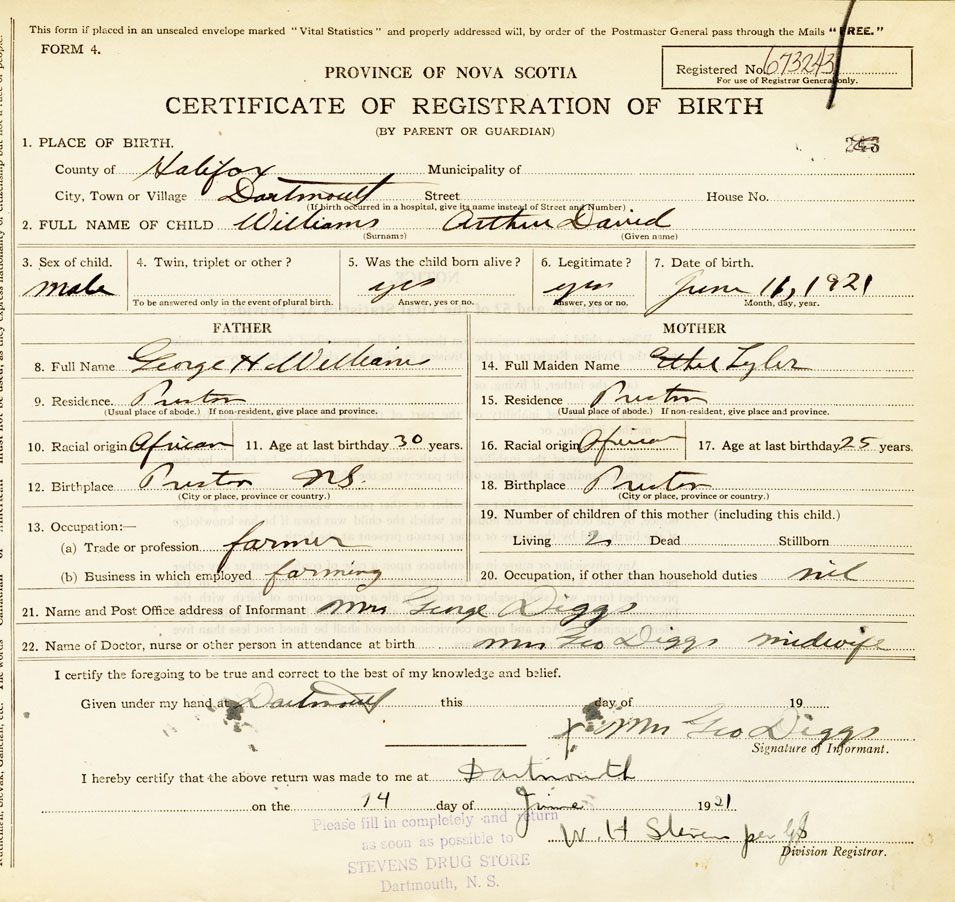 This form if placed in an unsealed envelope marked "Vital Statistics" and properly addressed will, by order of the Postmaster General pass through the Mails "FREE."
FORM 4.
Registered No. 673243
For use of Registrar General only.
PROVINCE OF NOVA SCOTIA
CERTIFICATE OF REGISTRATION OF BIRTH
(BY PARENT OR GUARDIAN)
1. PLACE OF BIRTH.
County of Halifax Municipality of
City, Town or Village Dartmouth Street House No.
(If birth occurred in a hospital, give its name instead of Street and Number)
2. FULL NAME OF CHILD Williams Arthur David
(Surname) (Given name)
3. Sex of child. 4. Twin, triplet or other? 5. Was the child born alive? 6. Legitimate? 7. Date of birth.
male yes yes June 11, 1921
To be answered only in the event of plural birth. Answer, yes or no. Answer, yes or no. Month, day, year.
FATHER
8. Full Name George H Williams
9. Residence Preston
(Usual place of abode.) If non-resident, give place and province.
10. Racial origin African 11. Age at last birthday 30 years.
12. Birthplace Preston NS.
(City or place, province or country.)
13. Occupation:—
(a) Trade or profession farmer
(b) Business in which employed farming
MOTHER
14. Full Maiden Name Ethel Tyler
15. Residence Preston
(Usual place of abode.) If non-resident, give place and province.
16. Racial origin African 17. Age at last birthday 25 years.
18. Birthplace Preston
(City or place, province or country.)
19. Number of children of this mother (including this child.)
Living 2 Dead Stillborn
20. Occupation, if other than household duties nil
21. Name and Post Office address of Informant Mrs George Diggs
22. Name of Doctor, nurse or other person in attendance at birth Mrs Geo Diggs midwife
I certify the foregoing to be true and correct to the best of my knowledge and belief.
Given under my hand at Dartmouth this day of 19
x Mrs Geo Diggs
Signature of Informant.
I hereby certify that the above return was made to me at Dartmouth
on the 14 day of June 1921
W. H Stevens per
Division Registrar.
Please fill in completely and return
as soon as possible to
STEVENS DRUG STORE
Dartmouth, N. S.